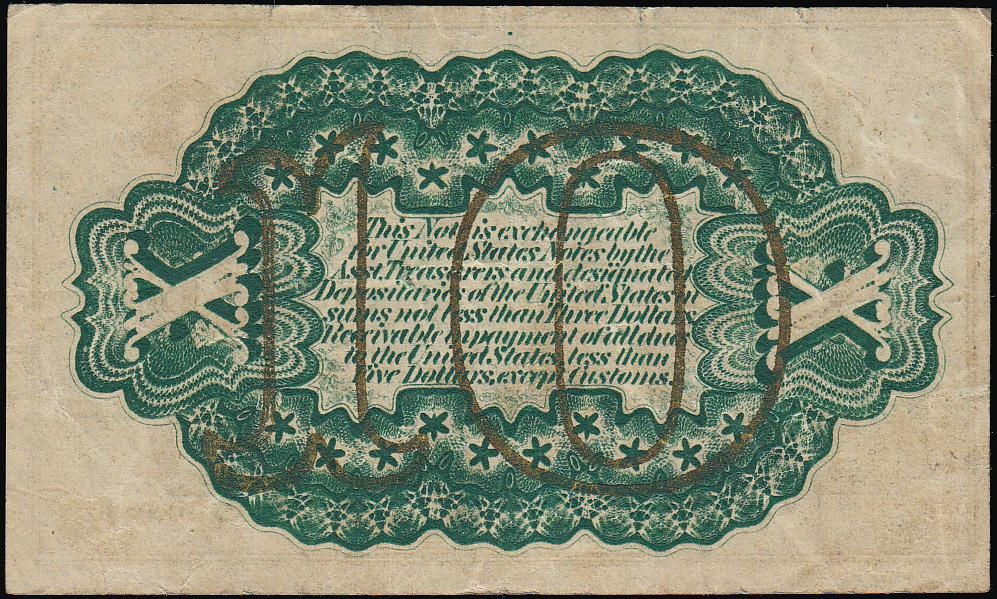 10
This Note is exchangeable
for United States Notes by the
Asst. Treasurers and designated
Depositaries of the United States in
sums not less than three Dollars.
Receivable in payment of all dues
to the United States less than
Five Dollars, except Customs.
X X